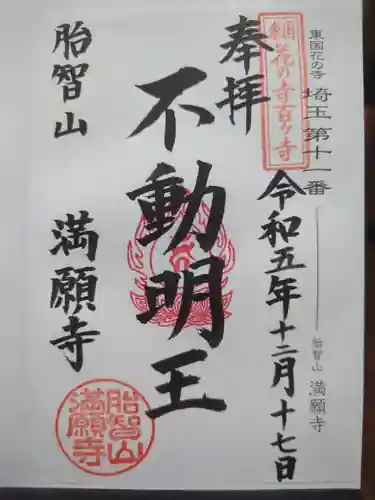 東国花の寺
埼玉第十一番
胎智山
満願寺
東国花の寺百ヶ寺
奉拝
令和五年十二月十七日
不動明王
胎智山
満願寺
胎智山
満願寺